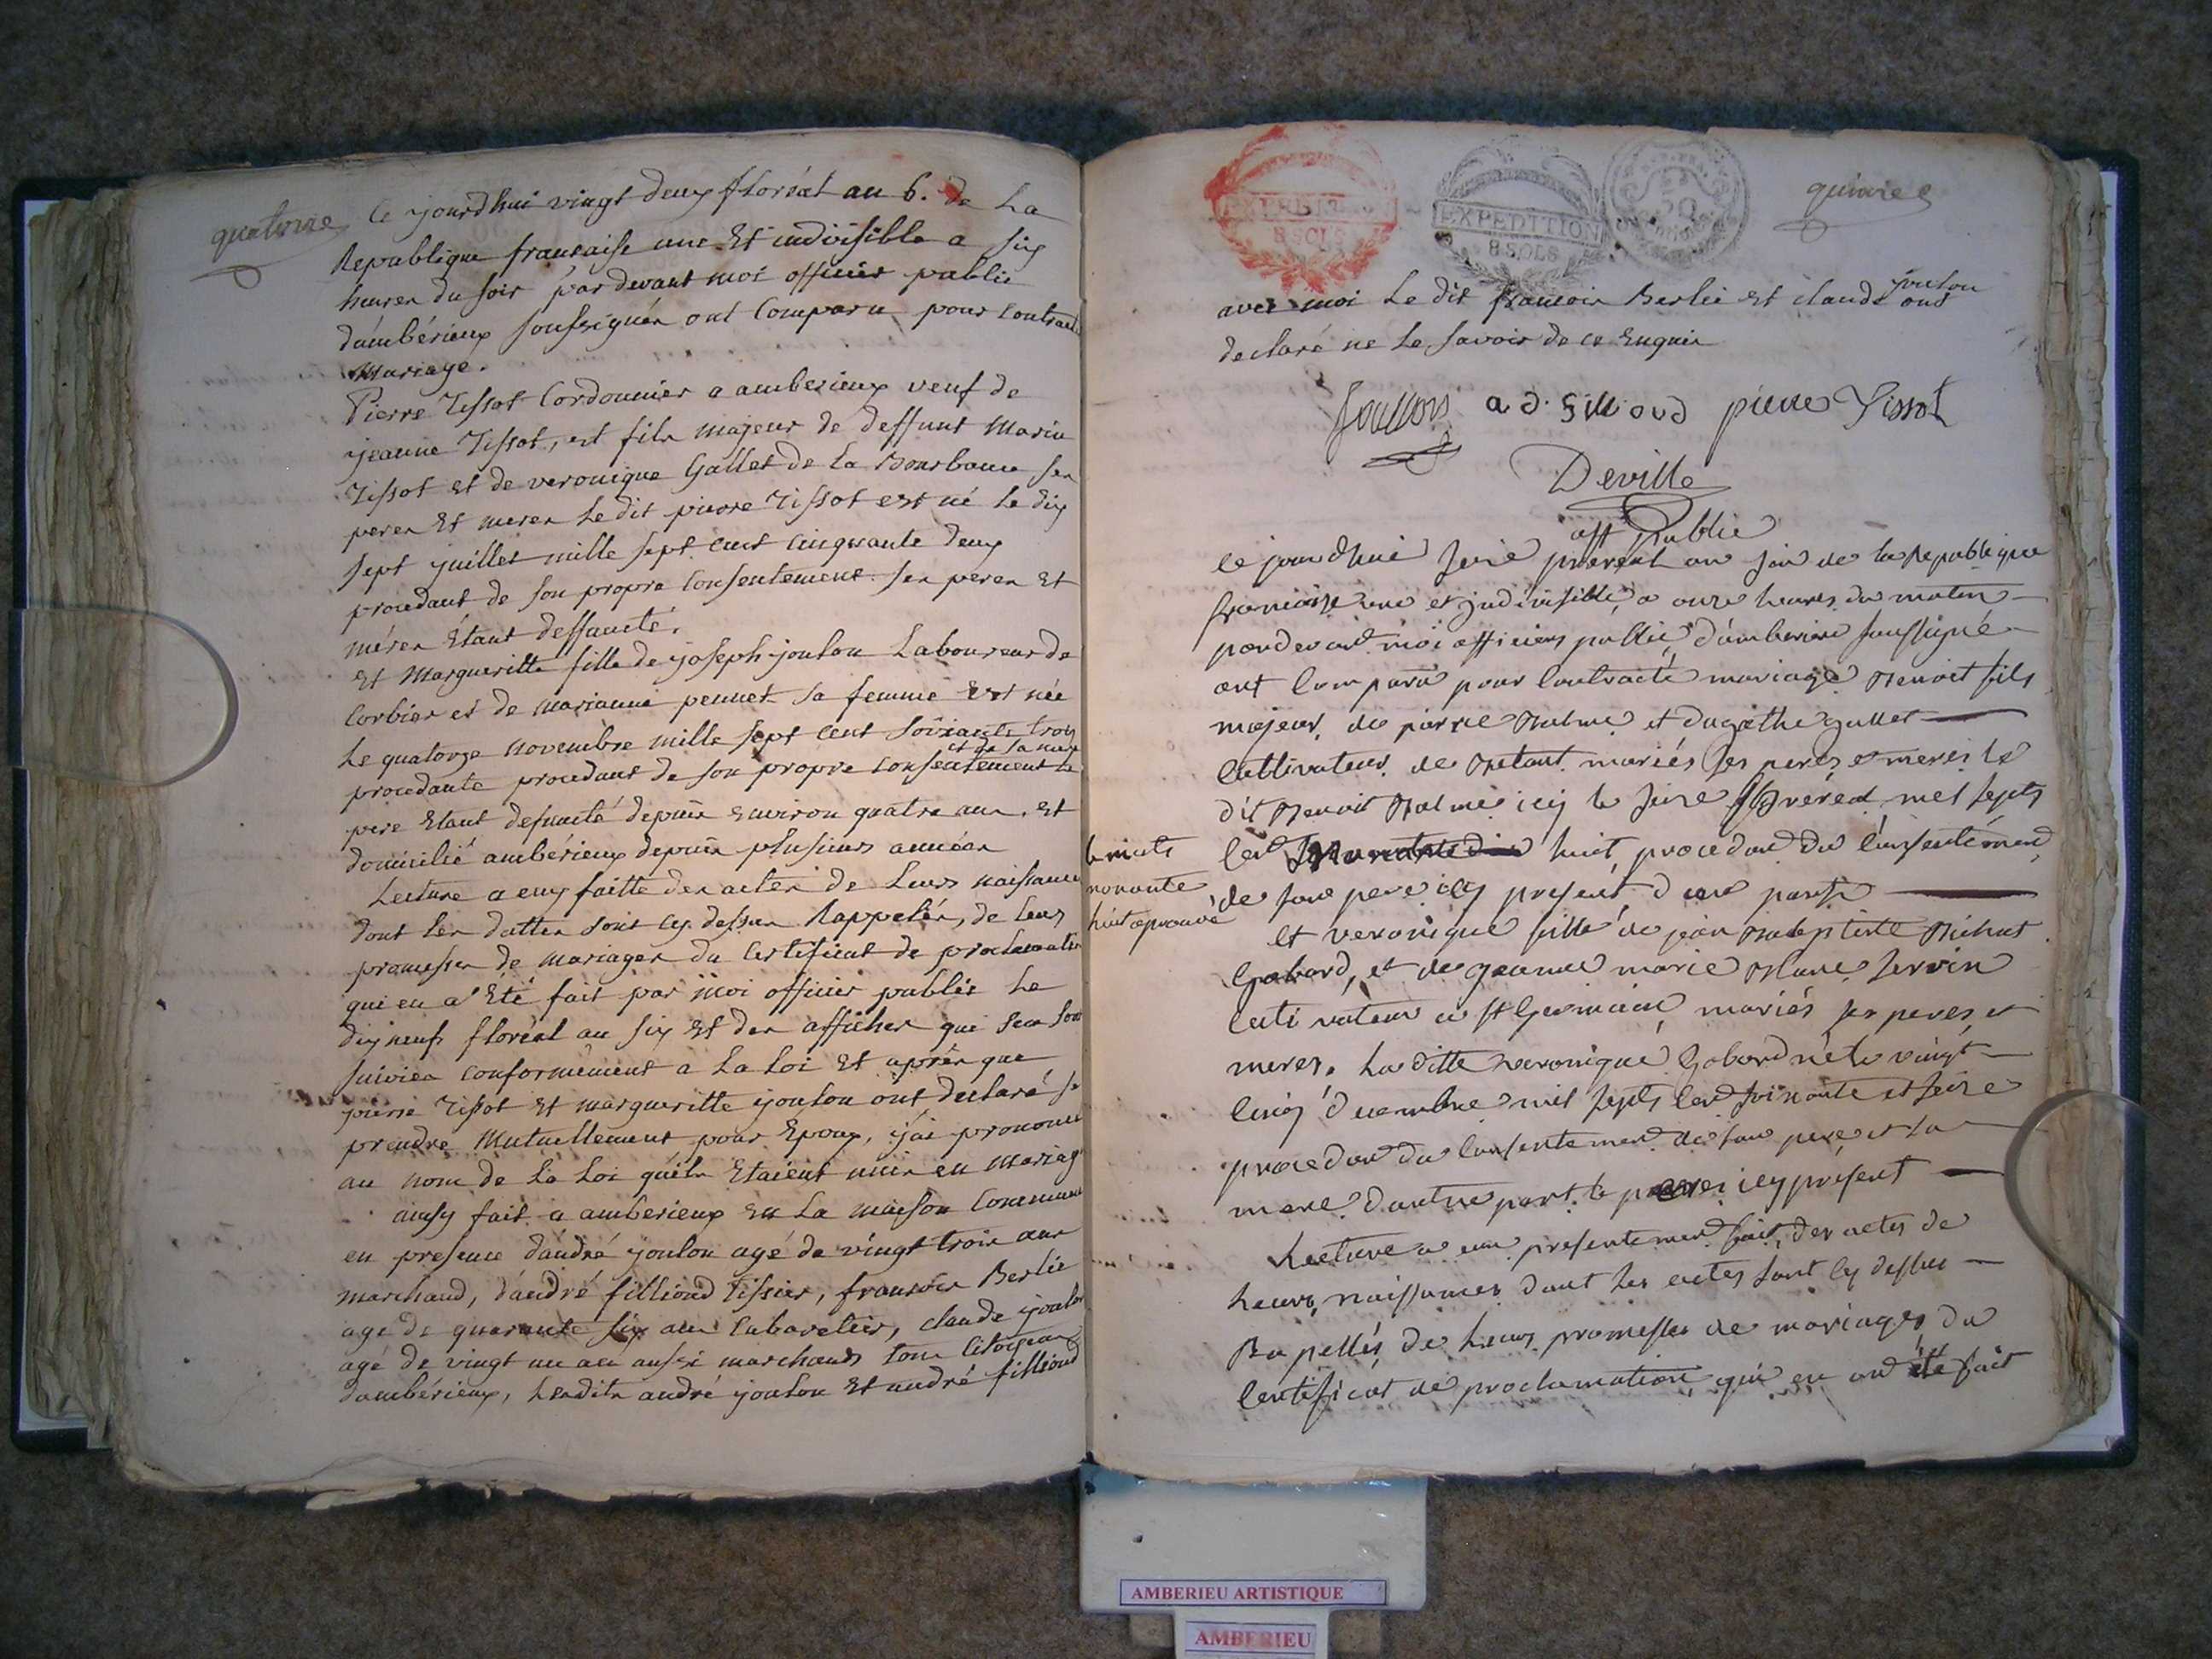 quatorze
Ce jourdhui vingt deux floréal an 6. de La
Republique francaise une Et indivisible a six
heures du soir par devant moi officier public
dambérieux soussignés ont Comparu pour Contracté
Mariage.
Pierre Tissot Cordonnier a amberieux veuf de
jeanne Tissot, est fils majeur de deffunt Marin
Tissot et de veronique Gallet de la Bourbanne ses
peres Et meres Le dit pierre Tissot est né Le dix
sept juillet mille sept cent cinquante deux
procedant de son propre Consentement ses peres Et
méres Étant deffuncté.
Et Margueritte fille de joseph joulou Laboureur de
Corbier et de marianne pennet sa femme Est née
Le quatorze novembre mille sept cent soixante trois
procedante procedant de son propre Consentement et de sa mere Le
pere Étant defuncté depuis Environ quatre ans. Et
domicilié ambérieux depuis plusieurs années
Lecture a eux faitte des actes de Leurs naissances
dont Les dattes sont cy dessus Rappelés, de Leurs
promesses de mariages du Certificat de proclamation
qui en a Eté fait par moi officier public Le
dix neuf floréal an six Et des affiches qui sen sont
suivies conformément a La Loi Et après que
pierre Tissot Et margueritte joulou ont declaré se
prendre Mutuellement pour Epoux, j'ai prononcé
au nom de La Loi quils Etaient unis en Mariage
ainsy fait a amberieux En La maison Commune
en presence d'andré joulou agé de vingt trois ans
marchand, d'andré filliond Tissier, francois Berlie
agé de quarante six ans Cabaretier, claude joulou
agé de vingt un ans aussi marchands tous Citoyens
dambérieux, Lesdits andré joulou Et andré filliond
quinze
EXPEDITION
8 SOLS
EXPEDITION
8 SOLS
avec moi Le dit francois Berlie et claude joulou ont
declaré ne Le savoir de ce Enquis
a. d. filliond pierre Tissot
Deville
off public
ce jourdhui seize prereal an six de la Republique
francoise une et indivisible a onze heures du matin
pardevant moi officiers public d'amberieu soussigné
ont comparu pour contracté mariage Benoit fils
majeur de pierre Balme et dagathe gallet
cultivateur de Betant mariés ses peres et meres le
dit Benoit Balme icy le seize prereal mel septs
cent huit procedant du consentement
le mots
nonante
huit aprouvé
de son pere icy present d'une part
et veronique fille de jean Babtiste Michut
Gabord, et de jeanne marie servin
cultivateur a st Germain mariés ses peres et
meres. La ditte veronique Gabord née le vingt
cinq décembre mil septs cent soixante et seize
procedant du consentement de son pere et sa
mere d'autre part le pere icy présent
Lecture a eux presentement fait, des actes de
Leurs naissances dont les actes sont cy dessus
Rapellés de Leurs promesses de mariages du
certificat de proclamation qui en ont été fait
AMBERIEU ARTISTIQUE
AMBERIEU